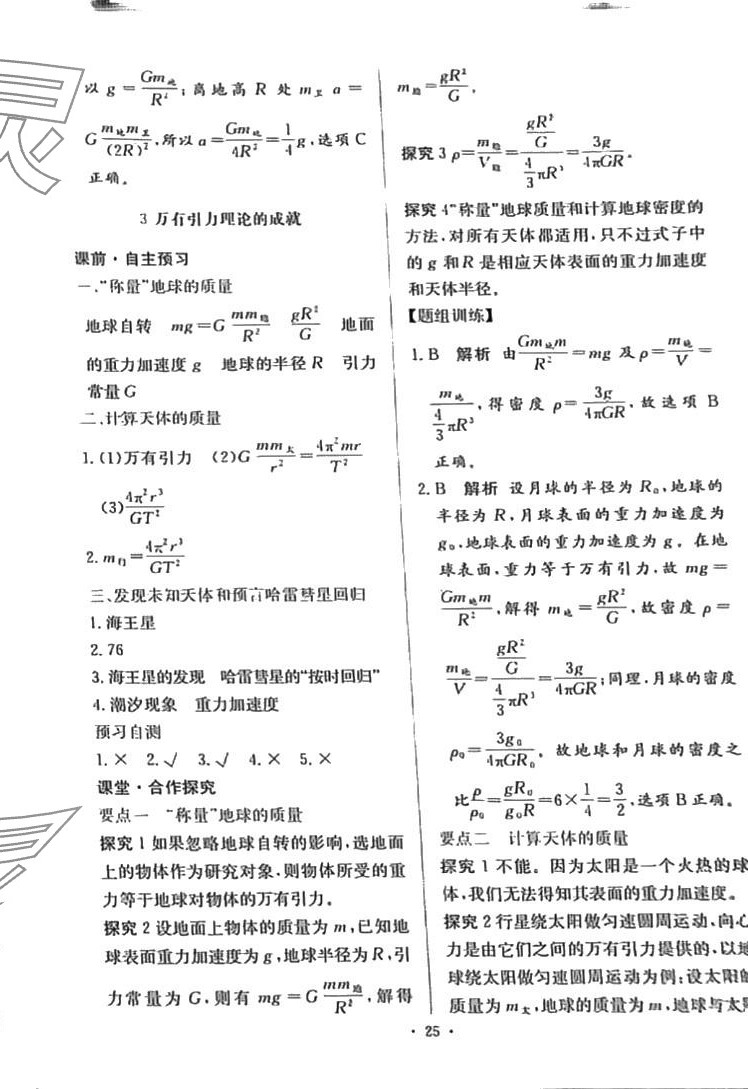 以 g = Gm地/R²；离地高 R 处 m卫 a =
G m地m卫/(2R)²，所以 a = Gm地/4R² = 1/4 g，选项 C
正确。
3 万有引力理论的成就
课前·自主预习
一、“称量”地球的质量
地球自转 mg=G mm地/R² gR²/G 地面
的重力加速度 g 地球的半径 R 引力
常量 G
二、计算天体的质量
1.(1)万有引力 (2)G mm太/r² = 4π²mr/T²
(3) 4π²r³/GT²
2. m中 = 4π²r³/GT²
三、发现未知天体和预言哈雷彗星回归
1.海王星
2.76
3.海王星的发现 哈雷彗星的“按时回归”
4.潮汐现象 重力加速度
预习自测
1.× 2.√ 3.√ 4.× 5.×
课堂·合作探究
要点一 “称量”地球的质量
探究 1 如果忽略地球自转的影响，选地面
上的物体作为研究对象，则物体所受的重
力等于地球对物体的万有引力。
探究 2 设地面上物体的质量为 m，已知地
球表面重力加速度为 g，地球半径为 R，引
力常量为 G，则有 mg=G mm地/R²，解得
m地 = gR²/G。
探究 3 ρ = m地/V地 = (gR²/G)/(4/3 πR³) = 3g/4πGR。
探究 4 “称量”地球质量和计算地球密度的
方法，对所有天体都适用，只不过式子中
的 g 和 R 是相应天体表面的重力加速度
和天体半径。
【题组训练】
1.B 解析 由 Gm地m/R² = mg 及 ρ = m地/V =
m地/(4/3 πR³)，得密度 ρ = 3g/4πGR，故选项 B
正确。
2.B 解析 设月球的半径为 R₀，地球的
半径为 R，月球表面的重力加速度为
g₀，地球表面的重力加速度为 g。在地
球表面，重力等于万有引力，故 mg =
Gm地m/R²，解得 m地 = gR²/G，故密度 ρ =
m地/V = (gR²/G)/(4/3 πR³) = 3g/4πGR；同理，月球的密度
ρ₀ = 3g₀/4πGR₀。故地球和月球的密度之
比 ρ/ρ₀ = gR₀/g₀R = 6×1/4 = 3/2，选项 B 正确。
要点二 计算天体的质量
探究 1 不能。因为太阳是一个火热的球
体，我们无法得知其表面的重力加速度。
探究 2 行星绕太阳做匀速圆周运动，向心
力是由它们之间的万有引力提供的，以地
球绕太阳做匀速圆周运动为例：设太阳的
质量为 m太，地球的质量为 m，地球与太阳
·25·